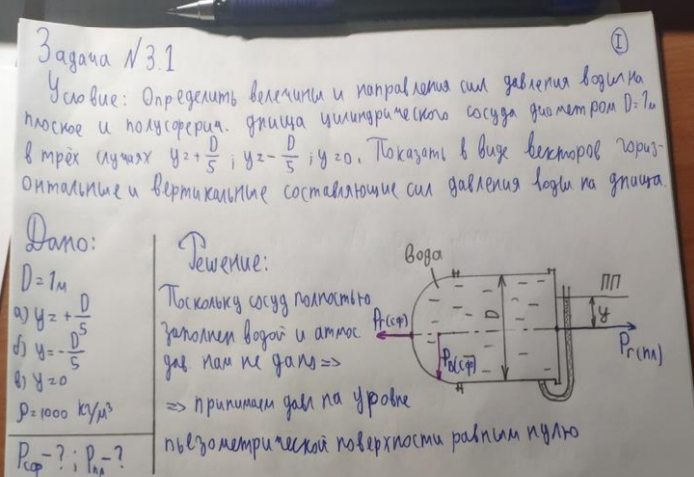 I
Задача №3.1
Условие: Определить велечины и направления сил давления воды на
плоское и полусферич. днища цилиндрического сосуда диаметром D=1м
в трёх случаях y=+D/5; y=-D/5; y=0. Показать в виде векторов гориз-
онтальные и вертикальные составляющие сил давления воды на днища.
Дано:
D=1м
а) y=+D/5
б) y=-D/5
в) y=0
ρ=1000 кг/м³
Pсф-?; Pпл-?
Решение:
Поскольку сосуд полностью
заполнен водой и атмос
дав. нам не дано =>
=> принимаем давл на уровне
пьезометрической поверхности равным нулю
вода
ПП
y
D
Pг(сф)
Pв(сф)
Pг(пл)